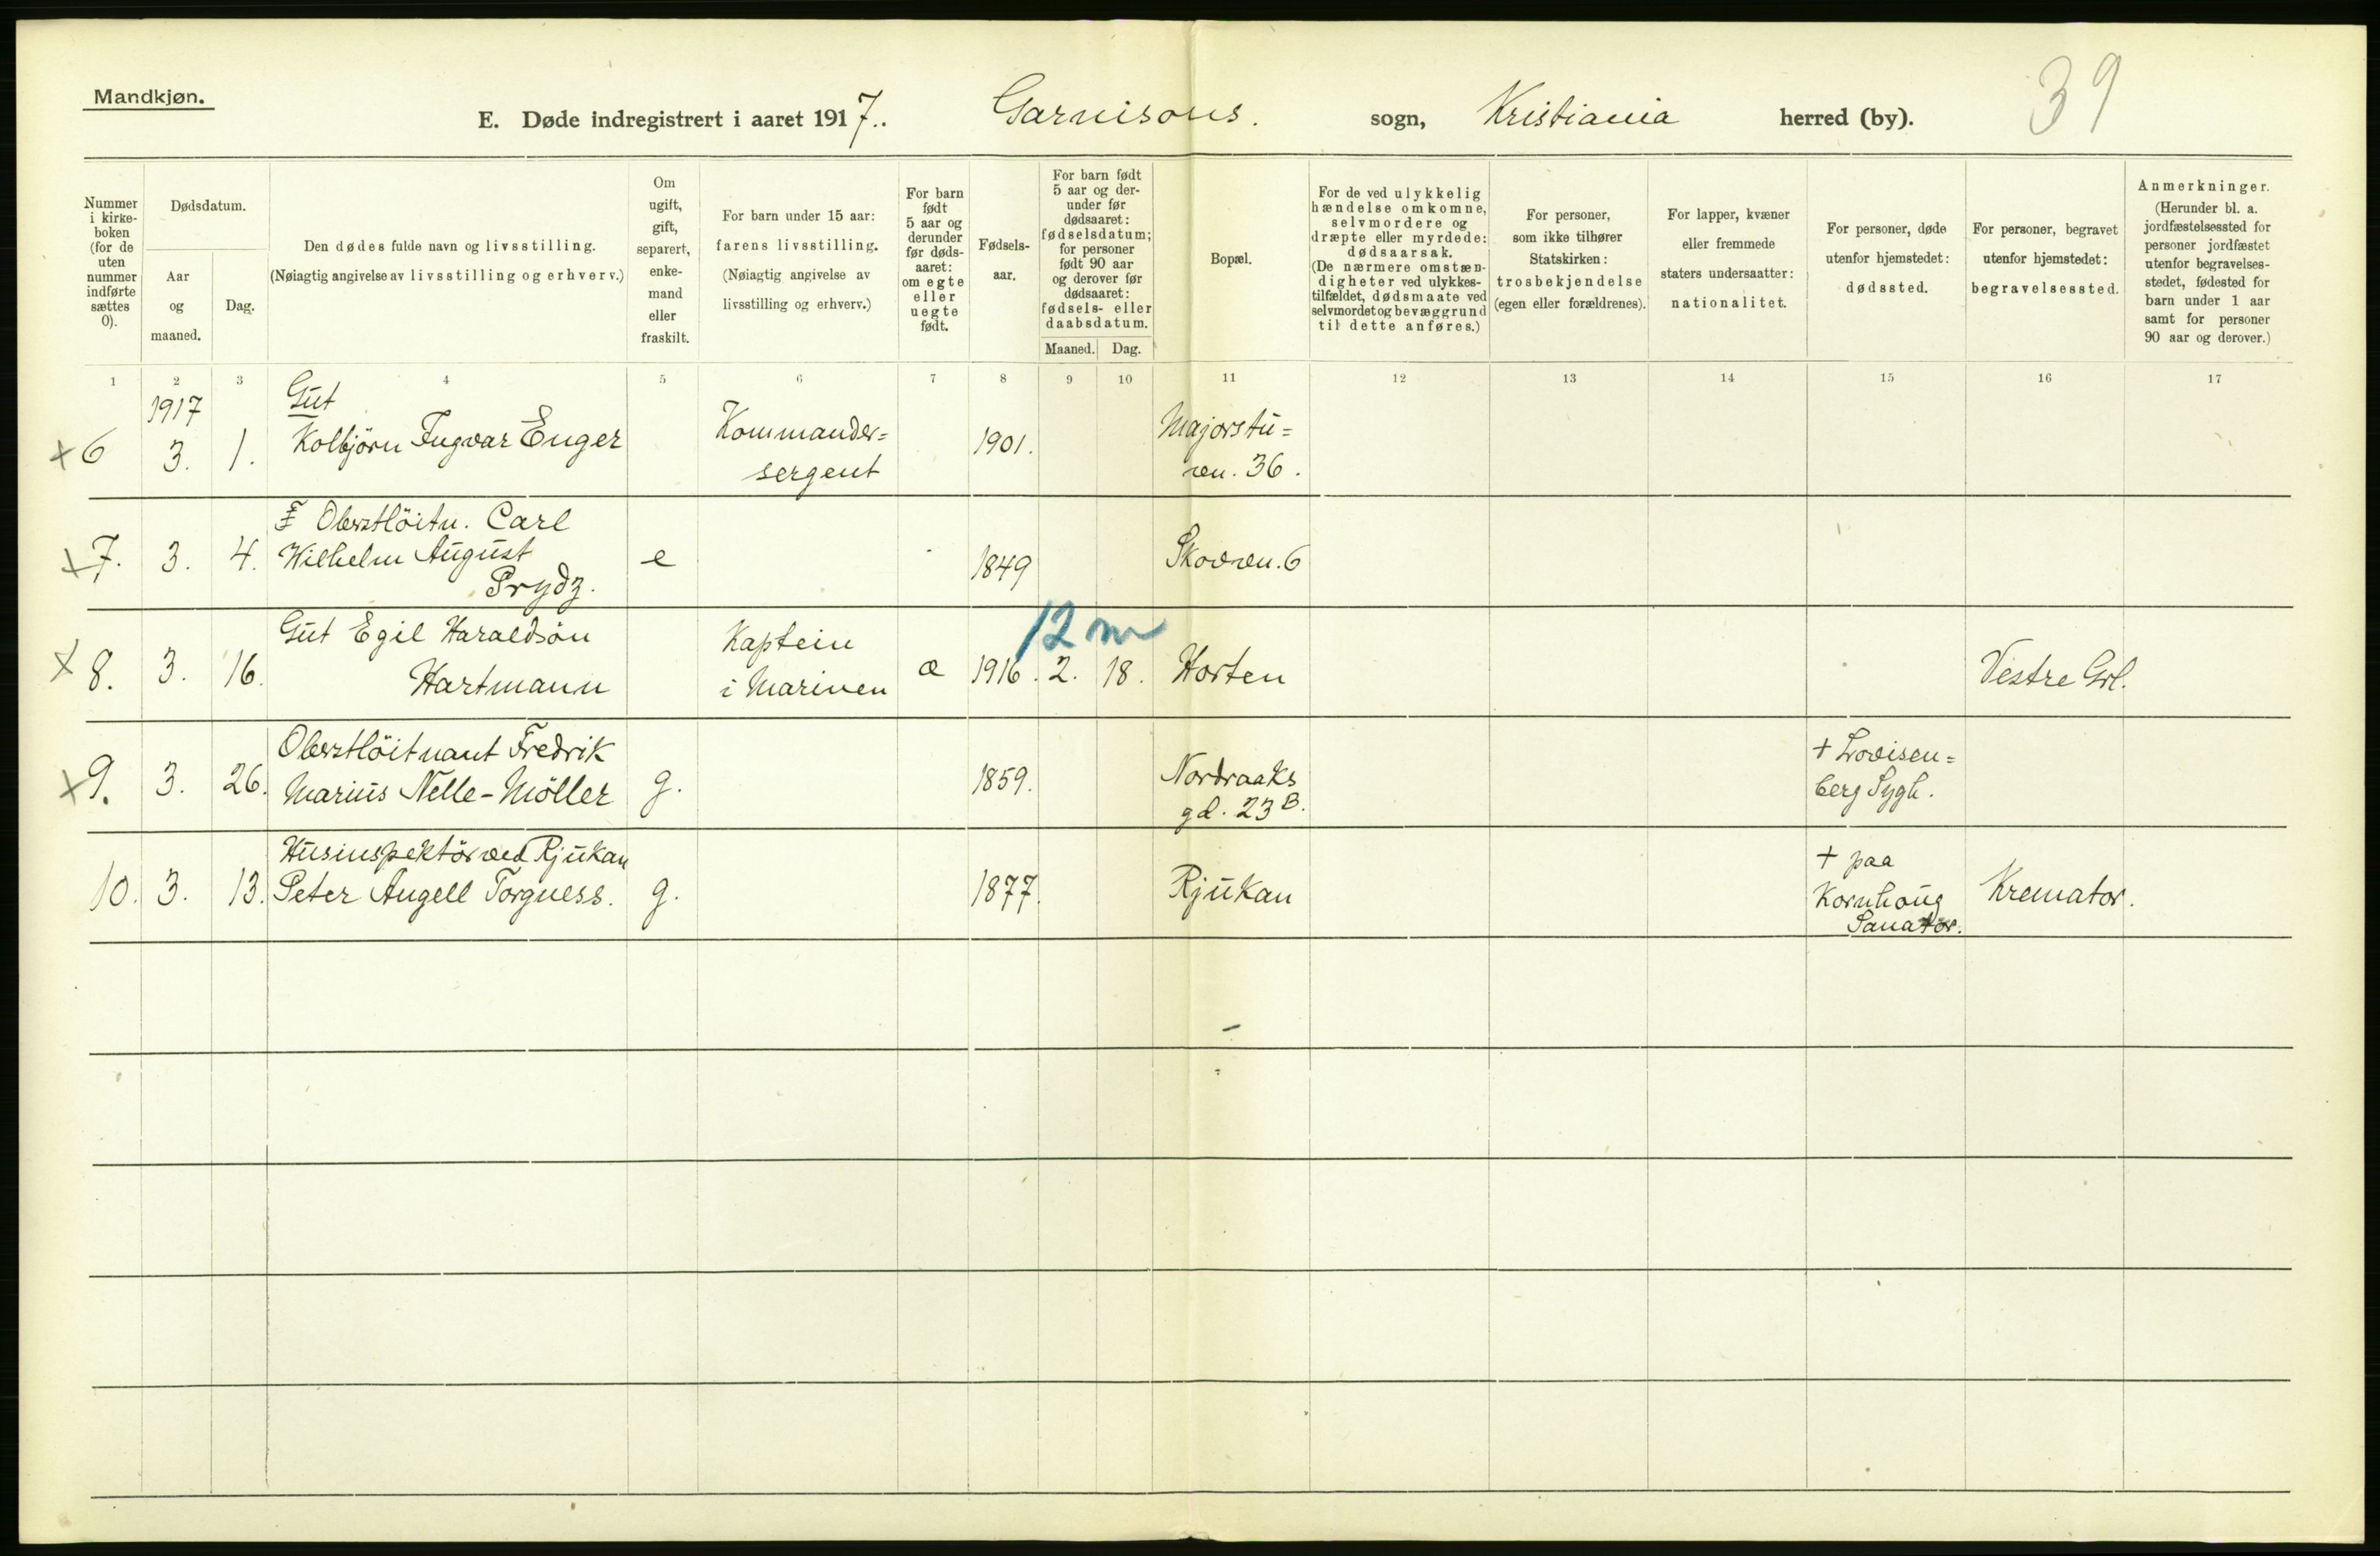 Mandkjøn.
E. Døde indregistrert i aaret 1917. Garnisons. sogn, Kristiania herred (by). 39
Nummer
i kirke-
boken
(for de
uten
nummer
indførte
sættes
0).
Dødsdatum.
Aar
og
maaned.
Dag.
Den dødes fulde navn og livsstilling.
(Nøiagtig angivelse av livsstilling og erhverv.)
Om
ugift,
gift,
separert,
enke-
mand
eller
fraskilt.
For barn under 15 aar:
farens livsstilling.
(Nøiagtig angivelse av
livsstilling og erhverv.)
For barn
født
5 aar og
derunder
før døds-
aaret:
om egte
eller
uegte
født.
Fødsels-
aar.
For barn født
5 aar og der-
under før
dødsaaret:
fødselsdatum;
for personer
født 90 aar
og derover før
dødsaaret:
fødsels- eller
daabsdatum.
Maaned. Dag.
Bopæl.
For de ved ulykkelig
hændelse omkomne,
selvmordere og
dræpte eller myrdede:
dødsaarsak.
(De nærmere omstæn-
digheter ved ulykkes-
tilfældet, dødsmaate ved
selvmordet og bevæggrund
til dette anføres.)
For personer,
som ikke tilhører
Statskirken:
trosbekjendelse
(egen eller forældrenes).
For lapper, kvæner
eller fremmede
staters undersaatter:
nationalitet.
For personer, døde
utenfor hjemstedet:
dødssted.
For personer, begravet
utenfor hjemstedet:
begravelsessted.
Anmerkninger.
(Herunder bl. a.
jordfæstelsessted for
personer jordfæstet
utenfor begravelses-
stedet, fødested for
barn under 1 aar
samt for personer
90 aar og derover.)
1 2 3 4 5 6 7 8 9 10 11 12 13 14 15 16 17
1917 Gut
+6 3. 1. Kolbjörn Ingvar Enger
Kommander=
sergent
1901.
Majorstu=
vn. 36.
F Oberstlöitn. Carl
+7. 3. 4. Wilhelm August
Prydz.
e 1849 Skovvn. 6
Gut Egil Haraldsön
+8. 3. 16. Hartmann
Kaptein
i Marinen
12 m
æ 1916. 2. 18. Horten Vestre Grl.
Oberstlöitnant Fredrik
+9. 3. 26. Marius Nelle-Möller g. 1859.
Nordraaks
gd. 23 B.
+ Lovisen=
berg Sygh.
Husinspektör ved Rjukan
10. 3. 13. Peter Angell Torgness. g. 1877. Rjukan
+ paa
Kornhoug
Sanator.
Kremator.